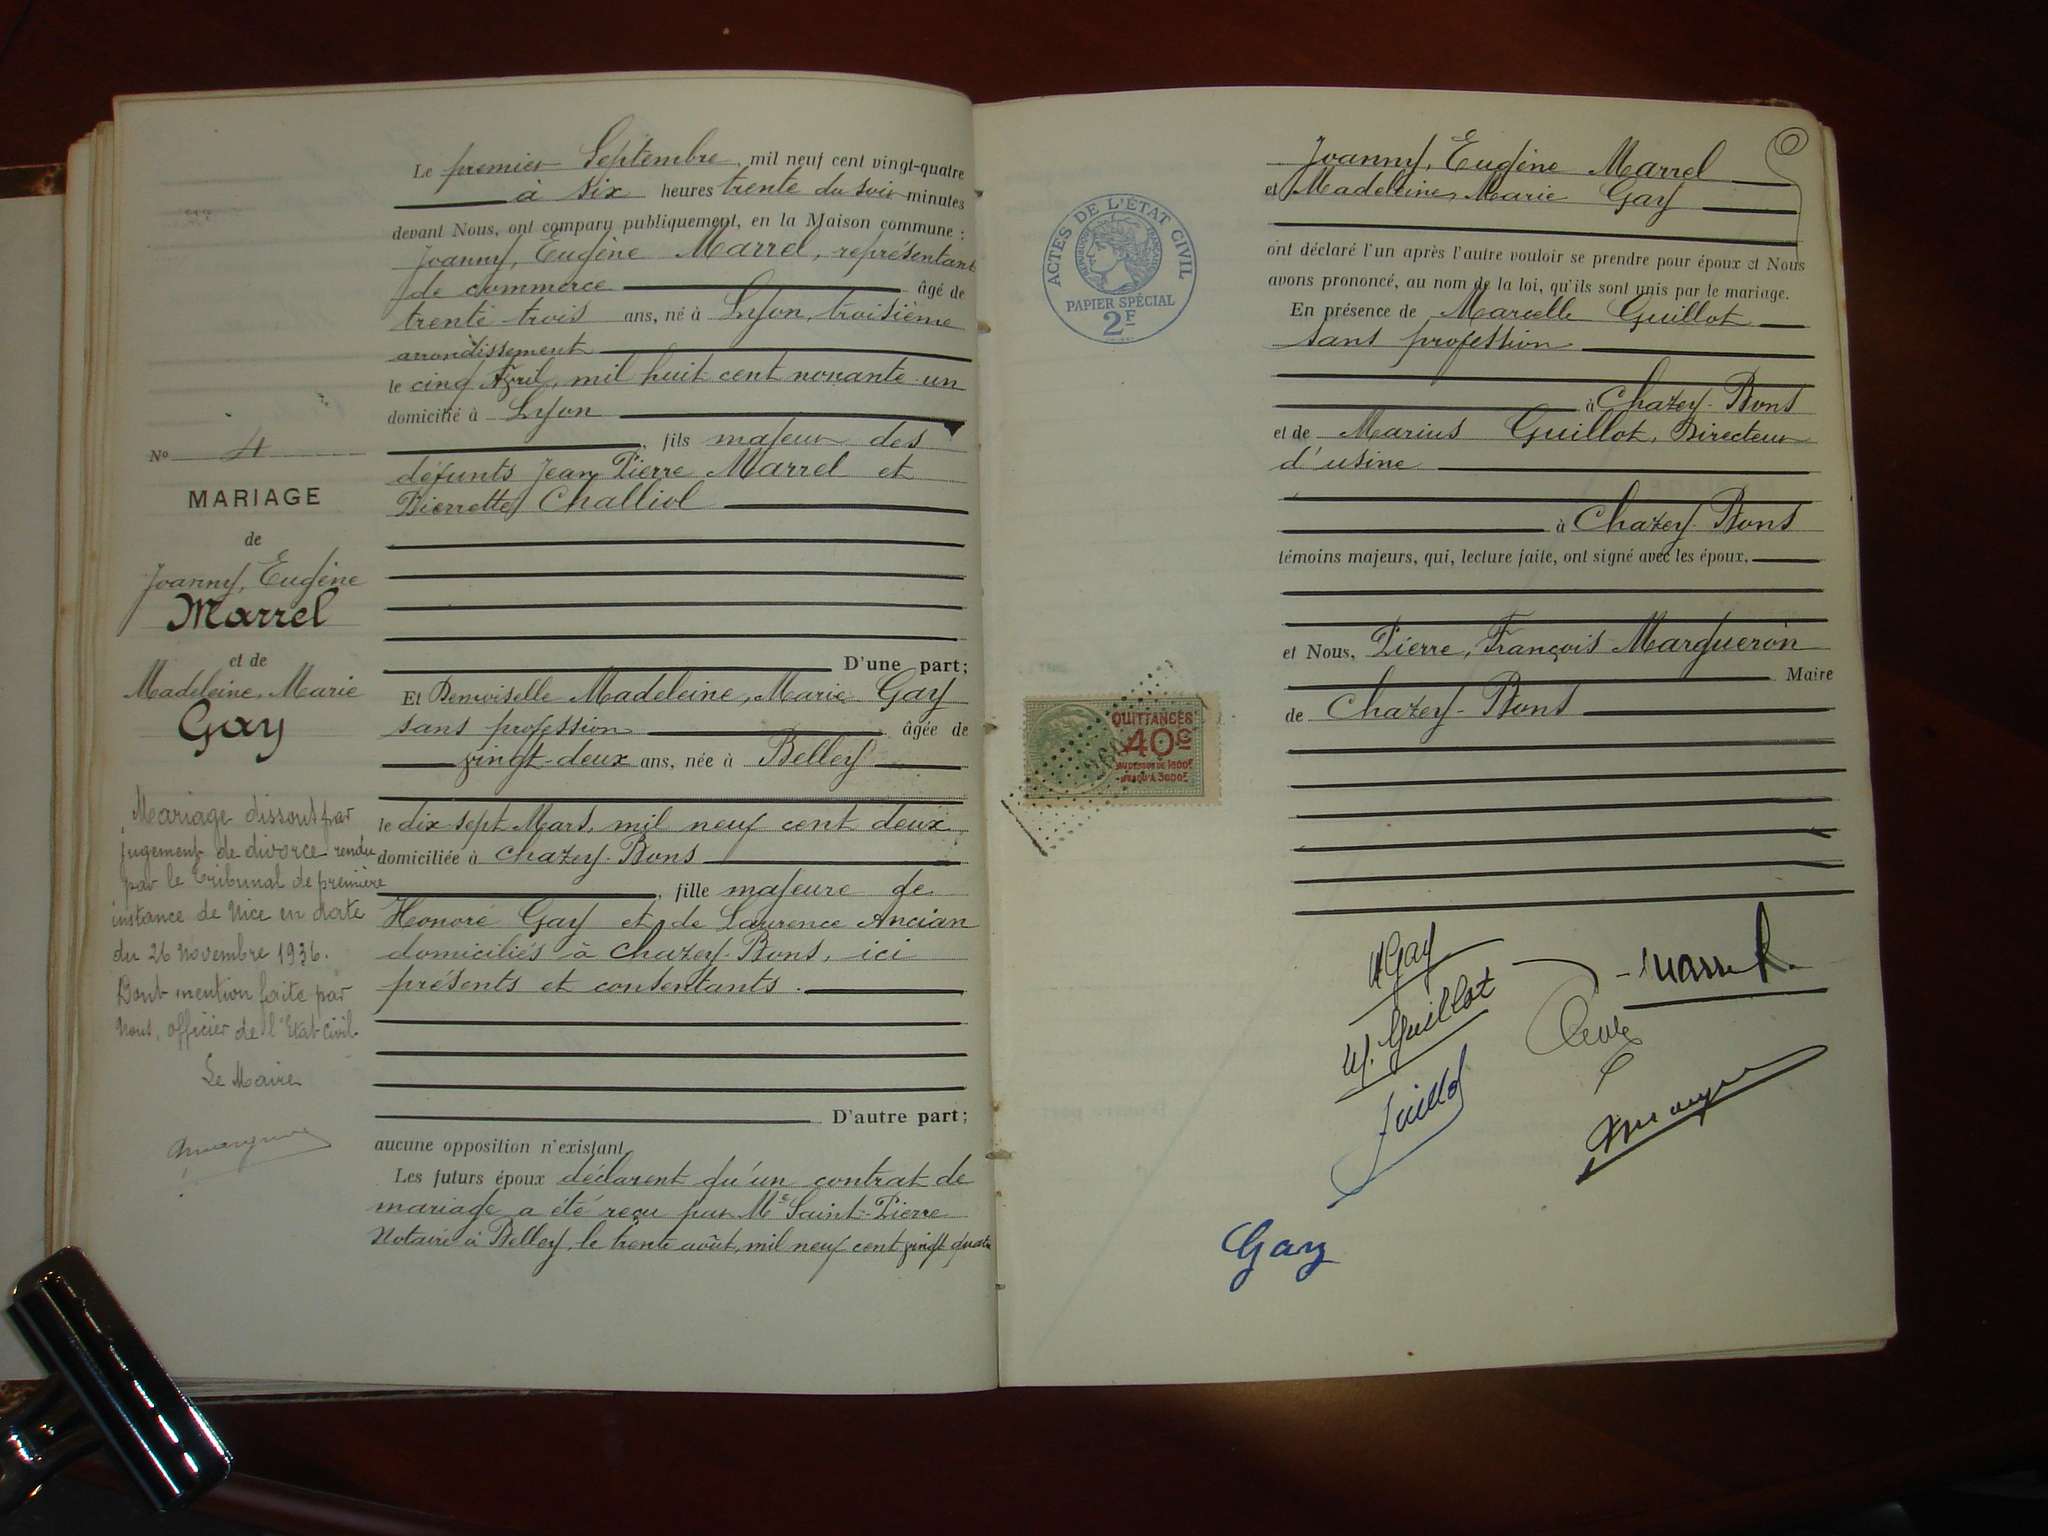 Le premier Septembre, mil neuf cent vingt-quatre
à six heures trente du soir minutes
devant Nous, ont comparu publiquement, en la Maison commune :
Joanny, Eugène Marrel, représentant
de commerce âgé de
trente trois ans, né à Lyon, troisième
arrondissement
le cinq Avril, mil huit cent nonante un
domicilié à Lyon
, fils majeur des
défunts Jean Pierre Marrel et
Pierrette Challiol
D'une part;
Et Demoiselle Madeleine, Marie Gay
sans profession âgée de
vingt-deux ans, née à Belley
le dix sept Mars, mil neuf cent deux
domiciliée à Chazey-Bons
, fille majeure de
Honoré Gay et de Laurence Ancian
domiciliés à Chazey-Bons, ici
présents et consentants.
D'autre part;
aucune opposition n'existant
Les futurs époux déclarent qu'un contrat de
mariage a été reçu par Me Saint-Pierre
Notaire à Belley, le trente août, mil neuf cent vingt quatre
No 4
MARIAGE
de
Joanny, Eugène
Marrel
et de
Madeleine, Marie
Gay
Mariage dissout par
jugement de divorce rendu
par le Tribunal de première
instance de Nice en date
du 26 Novembre 1936.
Dont mention faite par
Nous, officier de l'Etat-civil.
Le Maire
Joanny, Eugène Marrel
et Madeleine, Marie Gay
ont déclaré l'un après l'autre vouloir se prendre pour époux et Nous
avons prononcé, au nom de la loi, qu'ils sont unis par le mariage.
En présence de Marcelle Guillot
sans profession
à Chazey-Bons
et de Marius Guillot, Directeur
d'usine
à Chazey-Bons
témoins majeurs, qui, lecture faite, ont signé avec les époux.
et Nous, Pierre, François Margueron
Maire
de Chazey-Bons
ACTES DE L'ÉTAT CIVIL
RÉPUBLIQUE FRANÇAISE
PAPIER SPÉCIAL
2F
QUITTANCES
40c
AU DESSUS DE 1000F
JUSQU'A 3000F
M Gay
Marrel
M. Guillot
Gay